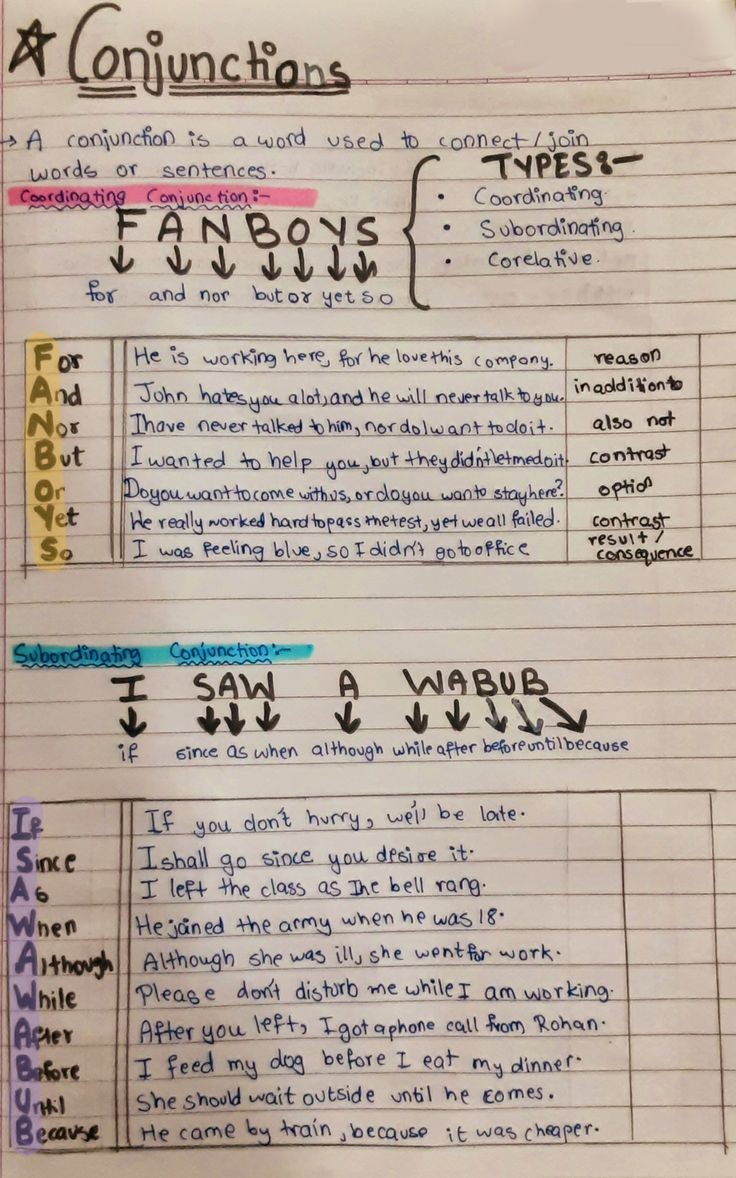 Conjunctions
→ A conjunction is a word used to connect/join
words or sentences.
TYPES:-
• Coordinating.
• Subordinating.
• Corelative.
Coordinating Conjunction:-
F A N B O Y S
for and nor but or yet so
For He is working here, for he love this company. reason
And John hates you alot, and he will never talk to you. in addition to
Nor I have never talked to him, nor do I want to do it. also not
But I wanted to help you, but they didn't let me do it. contrast
Or Do you want to come with us, or do you wan to stay here? option
Yet He really worked hard to pass the test, yet we all failed. contrast
So I was feeling blue, so I didn't go to office result/
consequence
Subordinating Conjunction:-
I SAW A WABUB
if since as when although while after before until because
If If you don't hurry, we'll be late.
Since I shall go since you desire it.
As I left the class as the bell rang.
When He joined the army when he was 18.
Although Although she was ill, she went for work.
While Please don't disturb me while I am working.
After After you left, I got a phone call from Rohan.
Before I feed my dog before I eat my dinner.
Until She should wait outside until he comes.
Because He came by train, because it was cheaper.